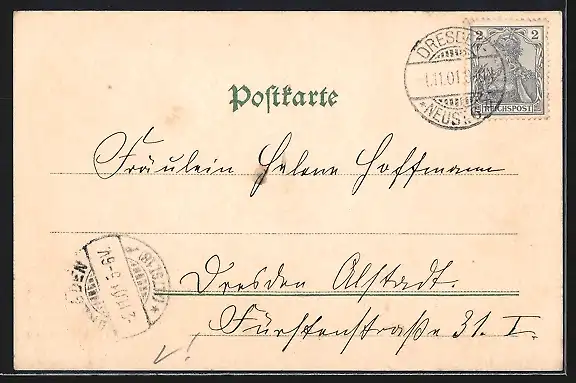 2 2
REICHSPOST
DRESDEN
1.11.01
* NEUST.
Postkarte
Fräulein Helene Hoffmann
Dresden Altstadt.
Fürstenstraße 31. I.
2.11.01 5-6V.
(ALTST.)